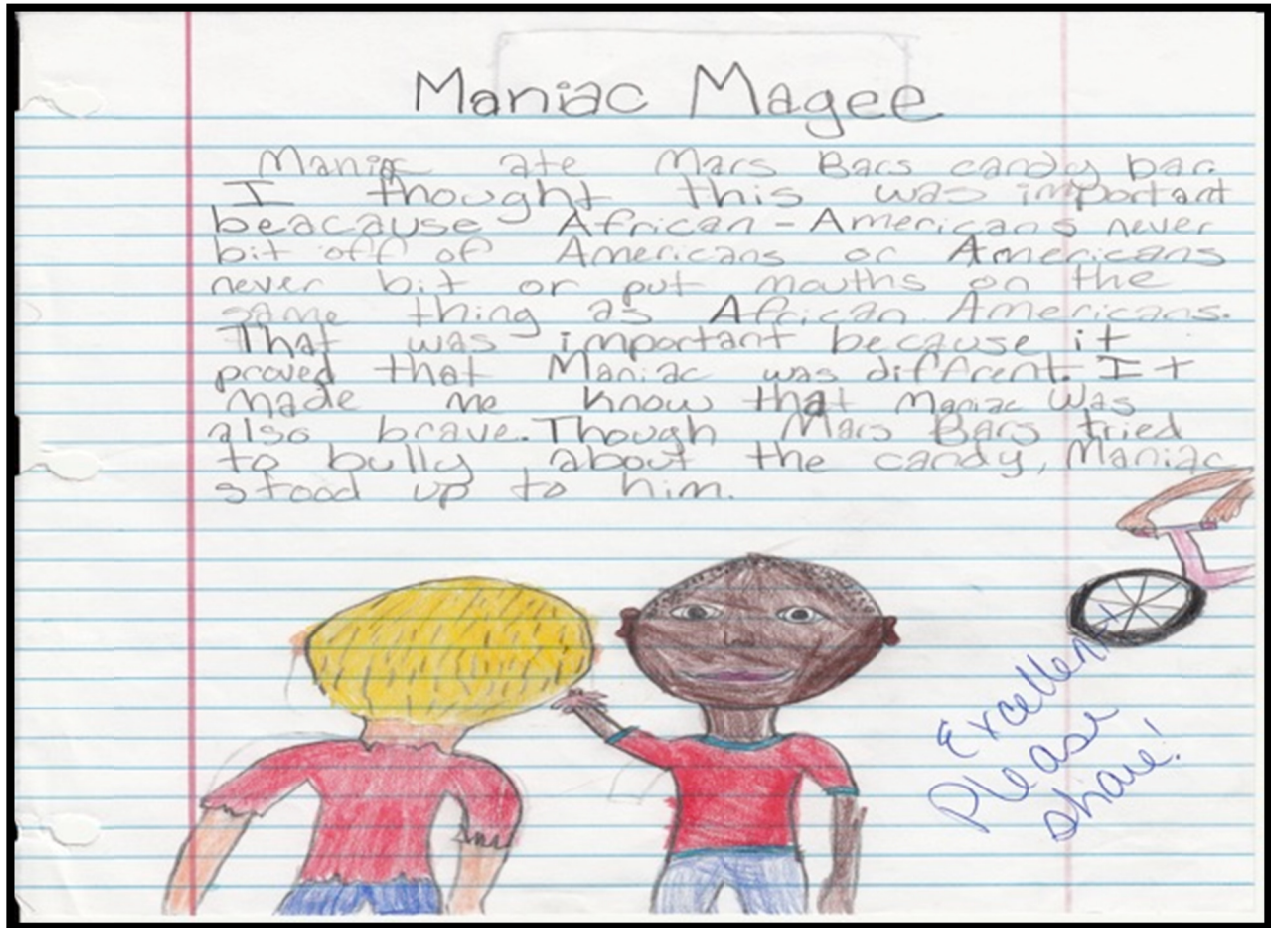 Maniac Magee
Maniac ate Mars Bars candy bar.
I thought this was important
beacause African-Americans never
bit off of Americans or Americans
never bit or put mouths on the
same thing as African Americans.
That was important because it
proved that Maniac was diffrent. It
made me know that Maniac was
also brave. Though Mars Bars tried
to bully, about the candy, Maniac
stood up to him.
Excellent
Please
share!